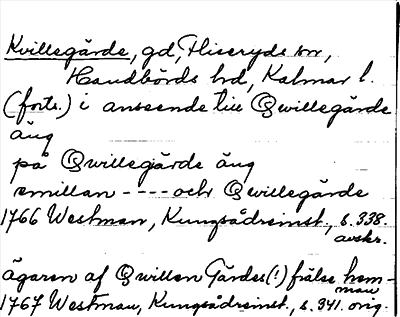 Kvillegärde, gd, Fliseryds sn,
Handbörds hd, Kalmar l.
(forts.) i anseende till Qwillegärde
äng
på Qwillegärde äng
emillan ---- och Qwillegärde
1766 Westman, Kungsådreinst., s. 338.
avskr.
ägaren af Qwillen Gärdes (!) frälse hem-
man
1767 Westman, Kungsådreinst., s. 341. orig.